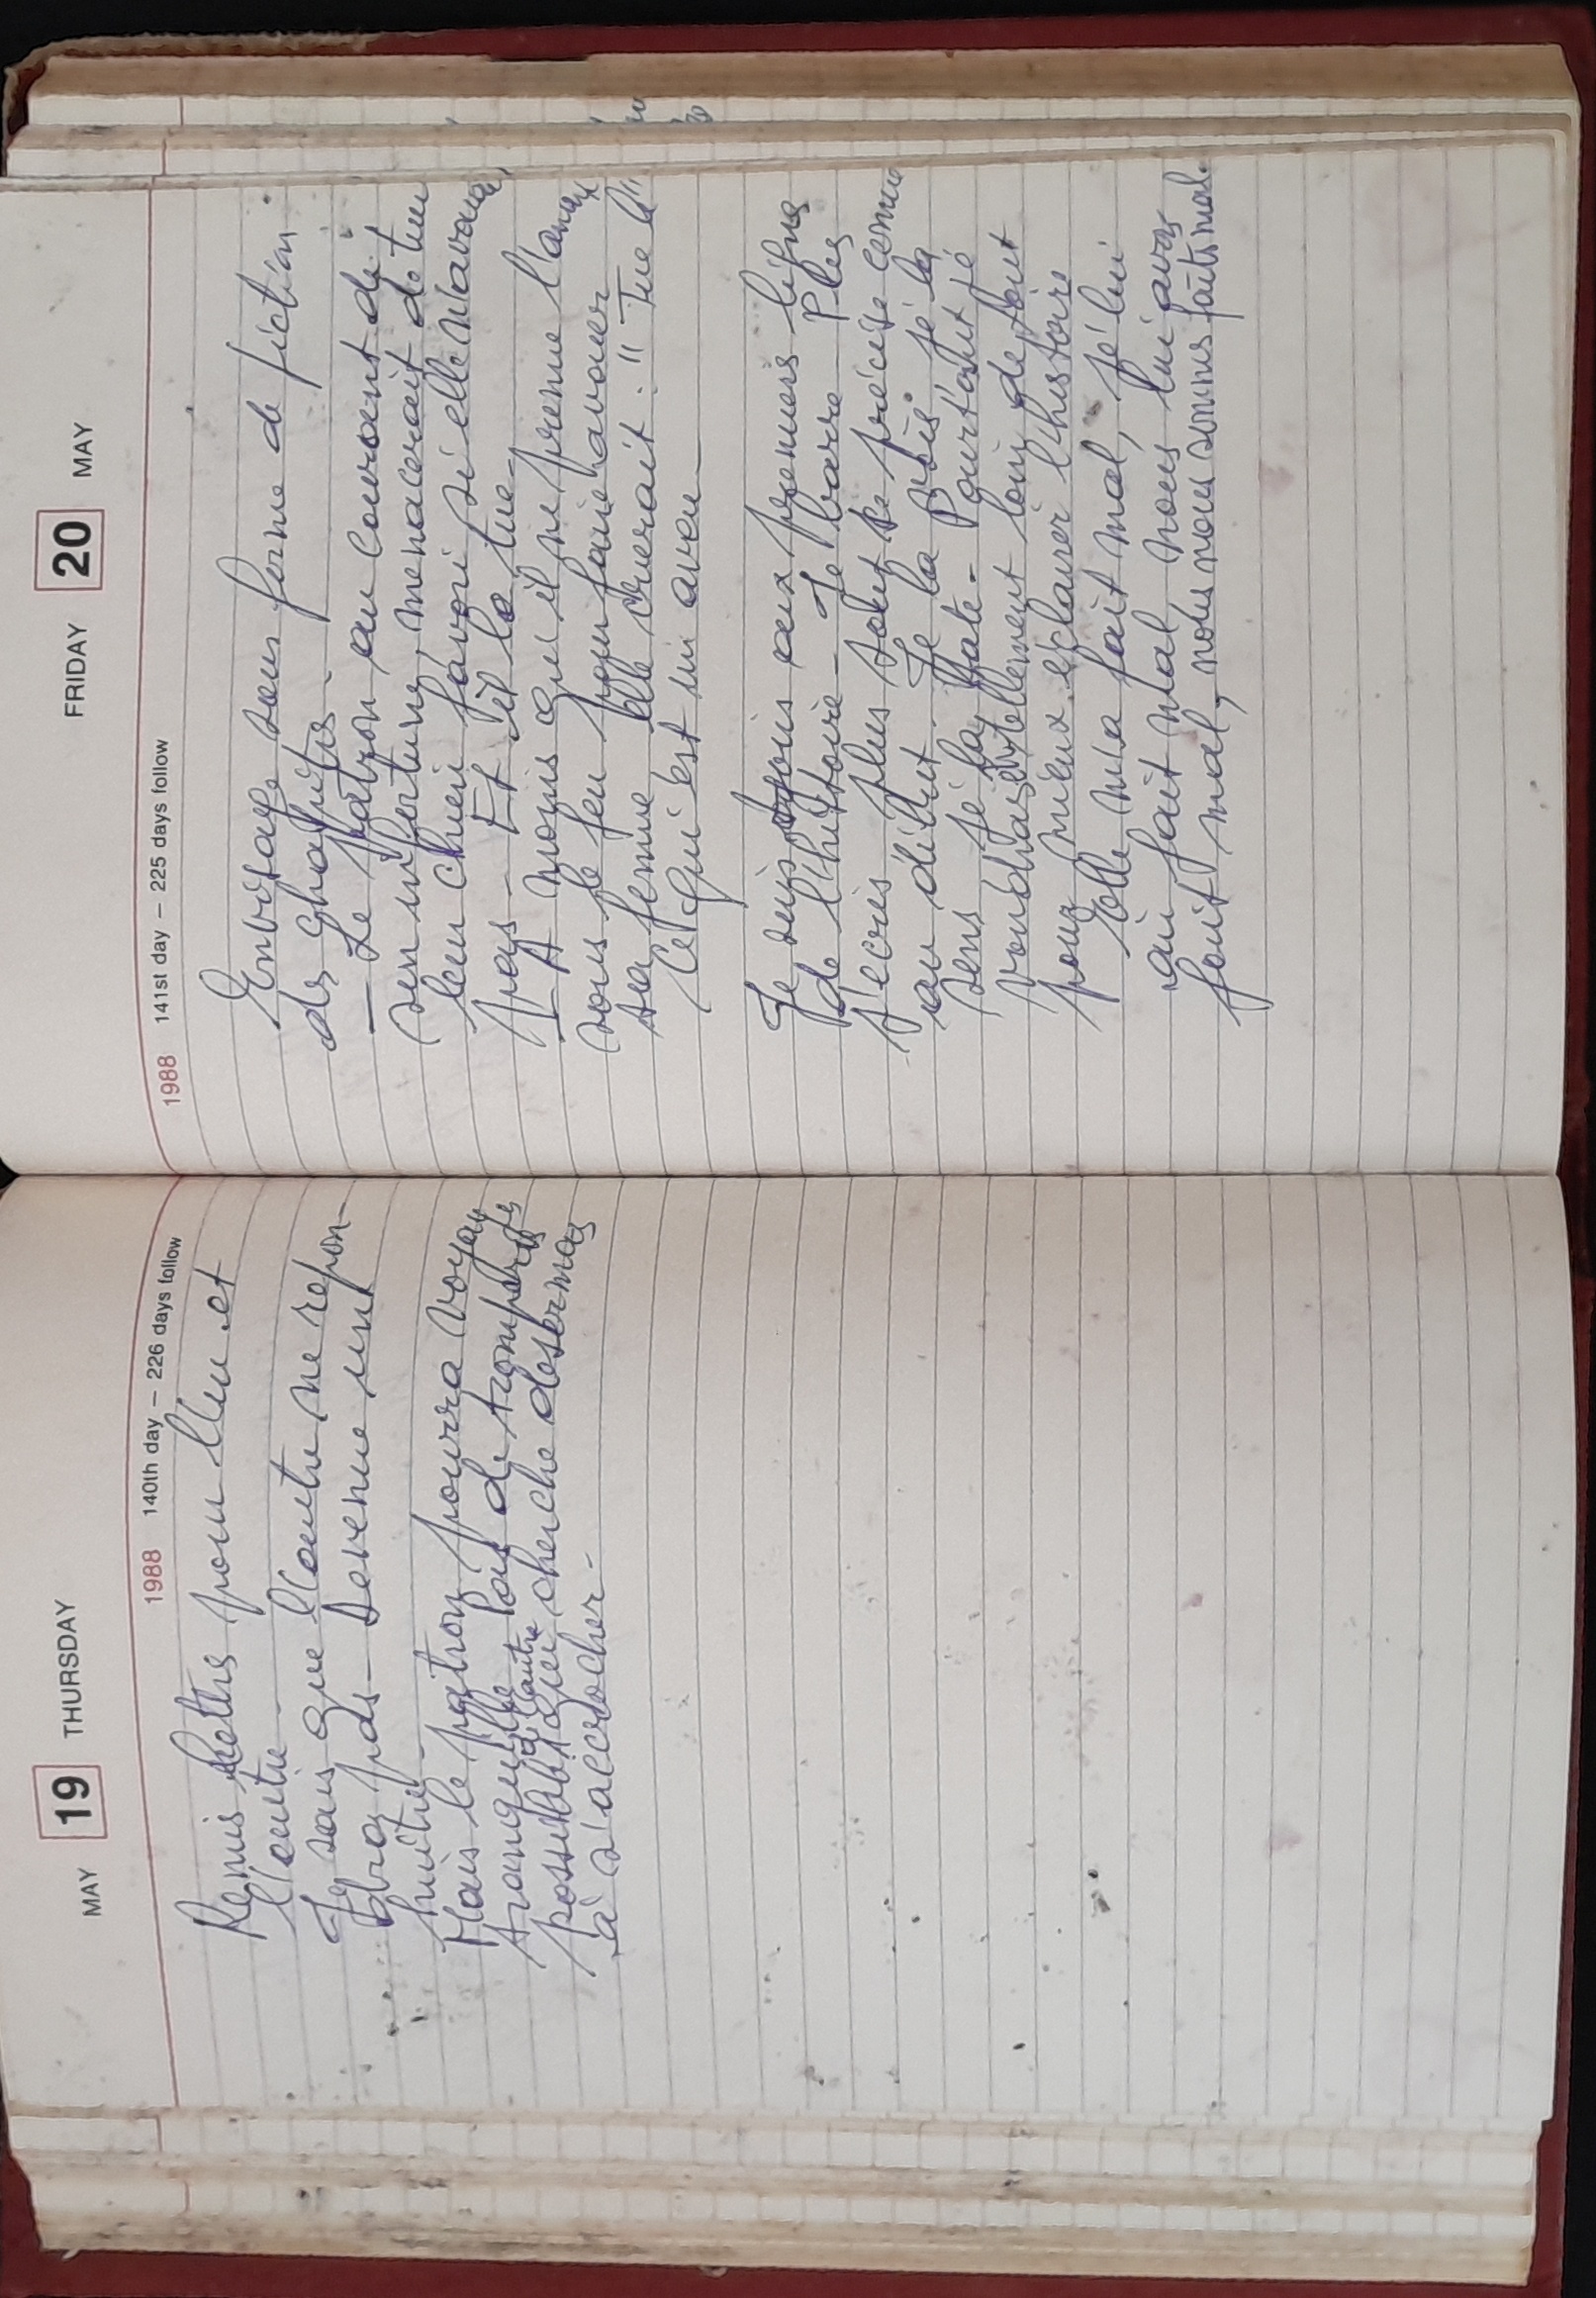 MAY 19 THURSDAY
1988 140th day – 226 days follow
Remis lettre pour l'un et
l'autre –
Je sais que l'autre ne répon-
dra pas – Devenue une
huître –
Mais le patron pourra voyag
tranquille pas de trompe
à l'autre
possibilité cherche désormais
à s'accrocher –
FRIDAY 20 MAY
1988 141st day – 225 days follow
Envisage sous forme de fiction
des chapitres –
– Le patron au courant de
son infortune, menacerait de tuer
leur chien favori si elle n'avoue
pas – Et il le tue –
– A moins qu'il ne prenne l'amant
sous le feu pour faire avouer
sa femme elle crierait : " Tue le "
Ce qui est un aveu –
Je suis depuis aux premiers lignes
de l'histoire – Je barre – Plus
j'écris plus tout se précise comme
au début. Je la vois. Je la
sens je la flate – Pourtant je
voudrais être tellement loin de tout
pour mieux éclairer l'histoire
Elle m'a fait mal, je lui
ai fait mal nous lui avons
fait mal, nous nous sommes faits mal.